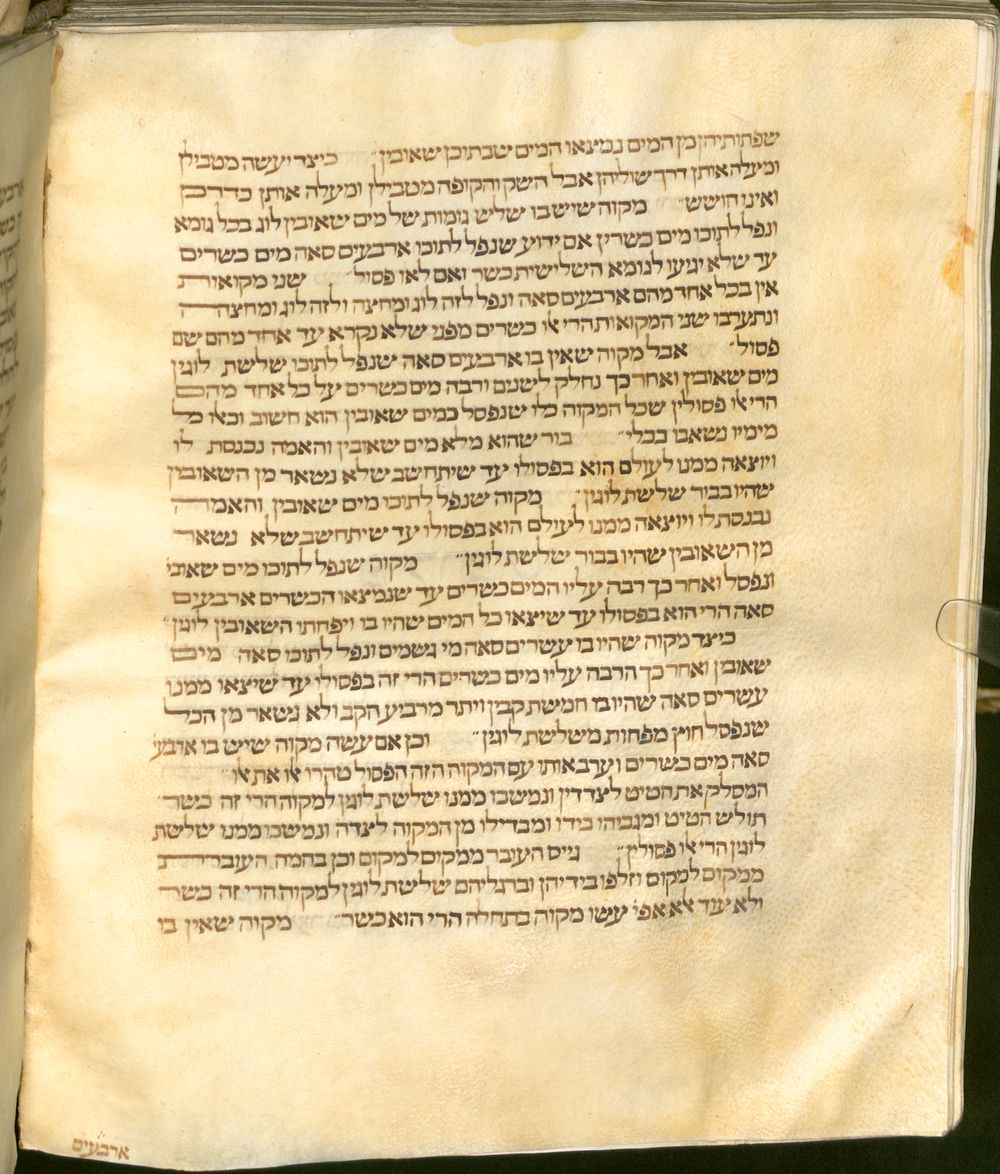 שפתותיהן מן המים נמצאו המים שבתוכן שאובין״ כיצד יעשה מטבילן
ומעלה אותן דרך שוליהן אבל השק והקופה מטבילן ומעלה אותן כדרכן
ואינו חושש״ מקוה שיש בו שלש גומות של מים שאובין לוג בכל גומא
ונפל לתוכו מים כשרין אם ידוע שנפל לתוכו ארבעים סאה מים כשרים
עד שלא יגיעו לגומא השלישית כשר ואם לאו פסול״ שני מקואות
אין בכל אחד מהם ארבעים סאה ונפל לזה לוג ומחצה ולזה לוג ומחצה
ונתערבו שני המקואות הרי אלו כשרים מפני שלא נקרא על אחד מהם שם
פסול״ אבל מקוה שאין בו ארבעים סאה שנפל לתוכו שלישת לוגין
מים שאובין ואחר כך נחלק לשנים ורבה מים כשרים על כל אחד מהם
הרי אלו פסולין שכל המקוה כלו שנפסל כמים שאובין הוא חשוב וכאלו כל
מימיו נשאבו בכלי״ בור שהוא מלא מים שאובין והאמה נכנסת לו
ויוצאה ממנו לעולם הוא בפסולו עד שיתחשב שלא נשאר מן השאובין
שהיו בבור שלשת לוגין״ מקוה שנפל לתוכו מים שאובין והאמה
נכנסת לו ויוצאה ממנו לעולם הוא בפסולו עד שיתחשב שלא נשאר
מן השאובין שהיו בבור שלשת לוגין״ מקוה שנפל לתוכו מים שאובי׳
ונפסל ואחר כך רבה עליו המים כשרים עד שנמצאו הכשרים ארבעים
סאה הרי הוא בפסולו עד שיצאו כל המים שהיו בו ויפחתו השאובין לוגין״
כיצד מקוה שהיו בו עשרים סאה מי גשמים ונפל לתוכו סאה מים
שאובין ואחר כך הרבה עליו מים כשרים הרי זה בפסולו עד שיצאו ממנו
עשרים סאה שהיו בו וחמשת קבין ויתר מרביע הקב ולא נשאר מן הכל
שנפסל חוץ מפחות משלישת לוגין״ וכן אם עשה מקוה שיש בו ארבעי׳
סאה מים כשרים וערב אותו עם המקוה הזה הפסול טהרו אלו את אלו״
המסלק את הטיט לצדדין ונמשכו ממנו שלישת לוגין למקוה הרי זה כשר
תולש הטיט ומגביהו בידו ומבדילו מן המקוה לצדה ונמשכו ממנו שלישת
לוגין הרי אלו פסולין״ גייס העובר ממקום למקום וכן בהמה העוברת
ממקום למקום וזלפו בידיהן וברגליהם שלישת לוגין למקוה הרי זה כשר
ולא עוד אלא אפי׳ עשו מקוה בתחלה הרי הוא כשר״ מקוה שאין בו
ארבעים